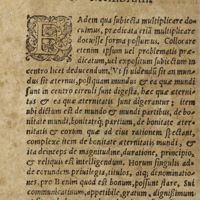 EAdem qua subiecta multiplicare do
cuimus, prædicata etiã multiplicare
docuisse forma possumus. Collocare
etenim ipsum uel problematis præ-
dicatum, uel expositum subiectum in
centro licet deducendum. Vt si uidendũ sit an mun-
dus sit æternus, postquam mundus & ea quæ mundi
sunt in centro circuli sunt digesta, hæc quæ æternita-
tis & quæ æternitatis sunt digerantur; item in
ibi dictum est de mundo & mundi partibus, de boni-
tate mundi, bonitatisq́; partium, de bonitate æter-
nitatis & eorum quæ ad eius rationem spectant,
complexe item de bonitate æternitatis mundi, &
ita deinceps de magnitudine, duratione, principio,
& reliquis est intelligendum. Horum singulis ad-
de eorundem priuilegia, titulos, atq; denominatio-
nes. pro B enim quod est bonum, possunt stare, sui
communicatiuum, appetibile, gratum, dignissimum